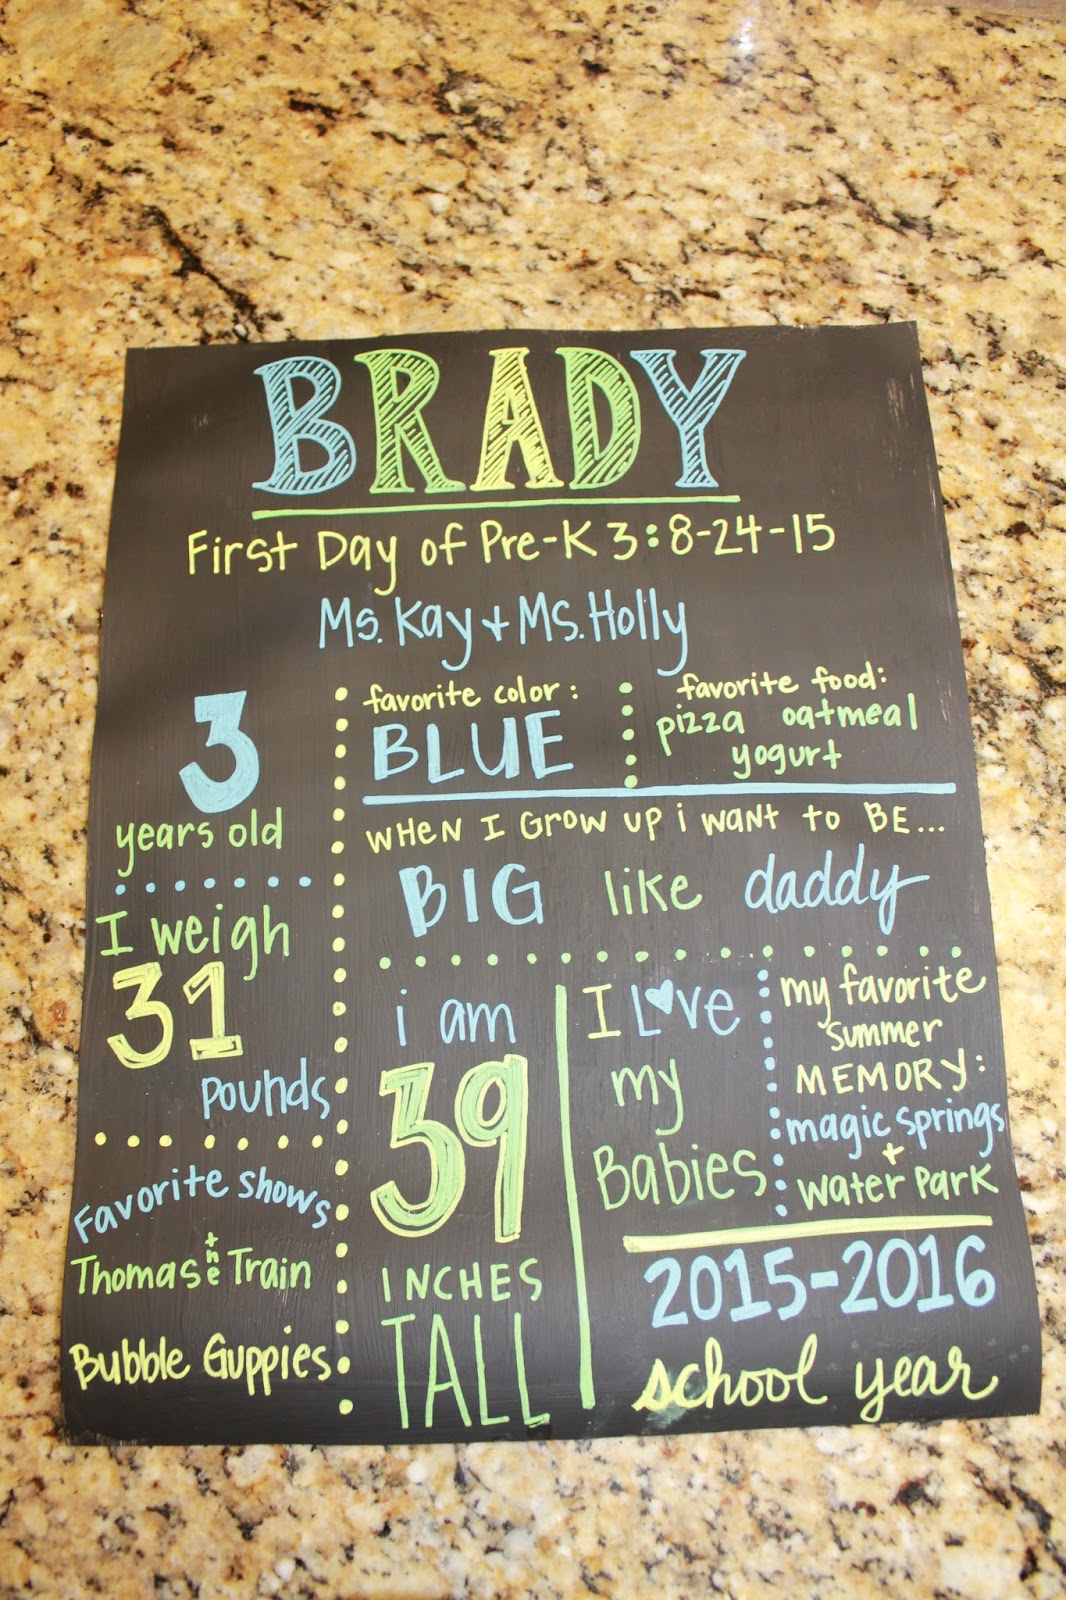 BRADY
First Day of Pre-K 3: 8-24-15
Ms. Kay + Ms. Holly
3
years old
I weigh
31
pounds
Favorite shows
Thomas the Train
Bubble Guppies
favorite color:
BLUE
favorite food:
pizza oatmeal
yogurt
WHEN I GROW UP i WANT to BE...
BIG like daddy
i am
39
INCHES
TALL
I LOVE
my
Babies
my favorite
summer
MEMORY:
magic springs
+
WATER PARK
2015-2016
school year